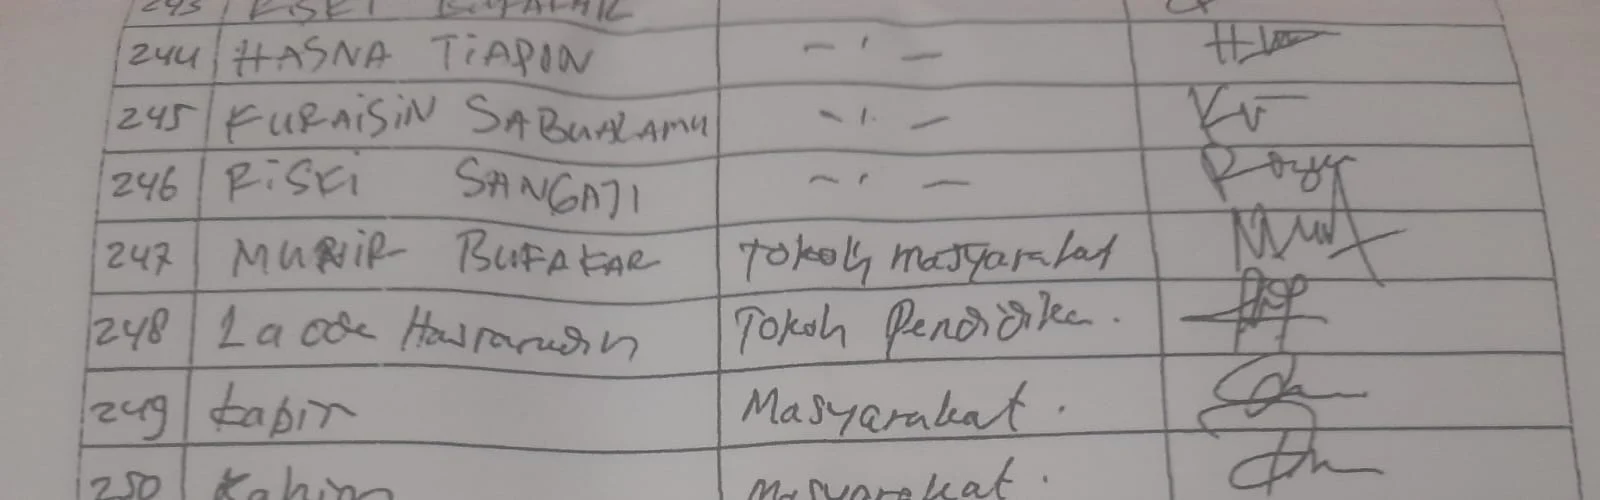 243 RISKI
244 HASNA TIAPON — ' —
245 KURAISIN SABUALAMU — ' —
246 RISKI SANGAJI — ' —
247 MUNIR BUFAKAR Tokoh masyarakat
248 La ode Hasranudin Tokoh Pendidika.
249 Kabir Masyarakat.
250 Kahim Masyarakat.